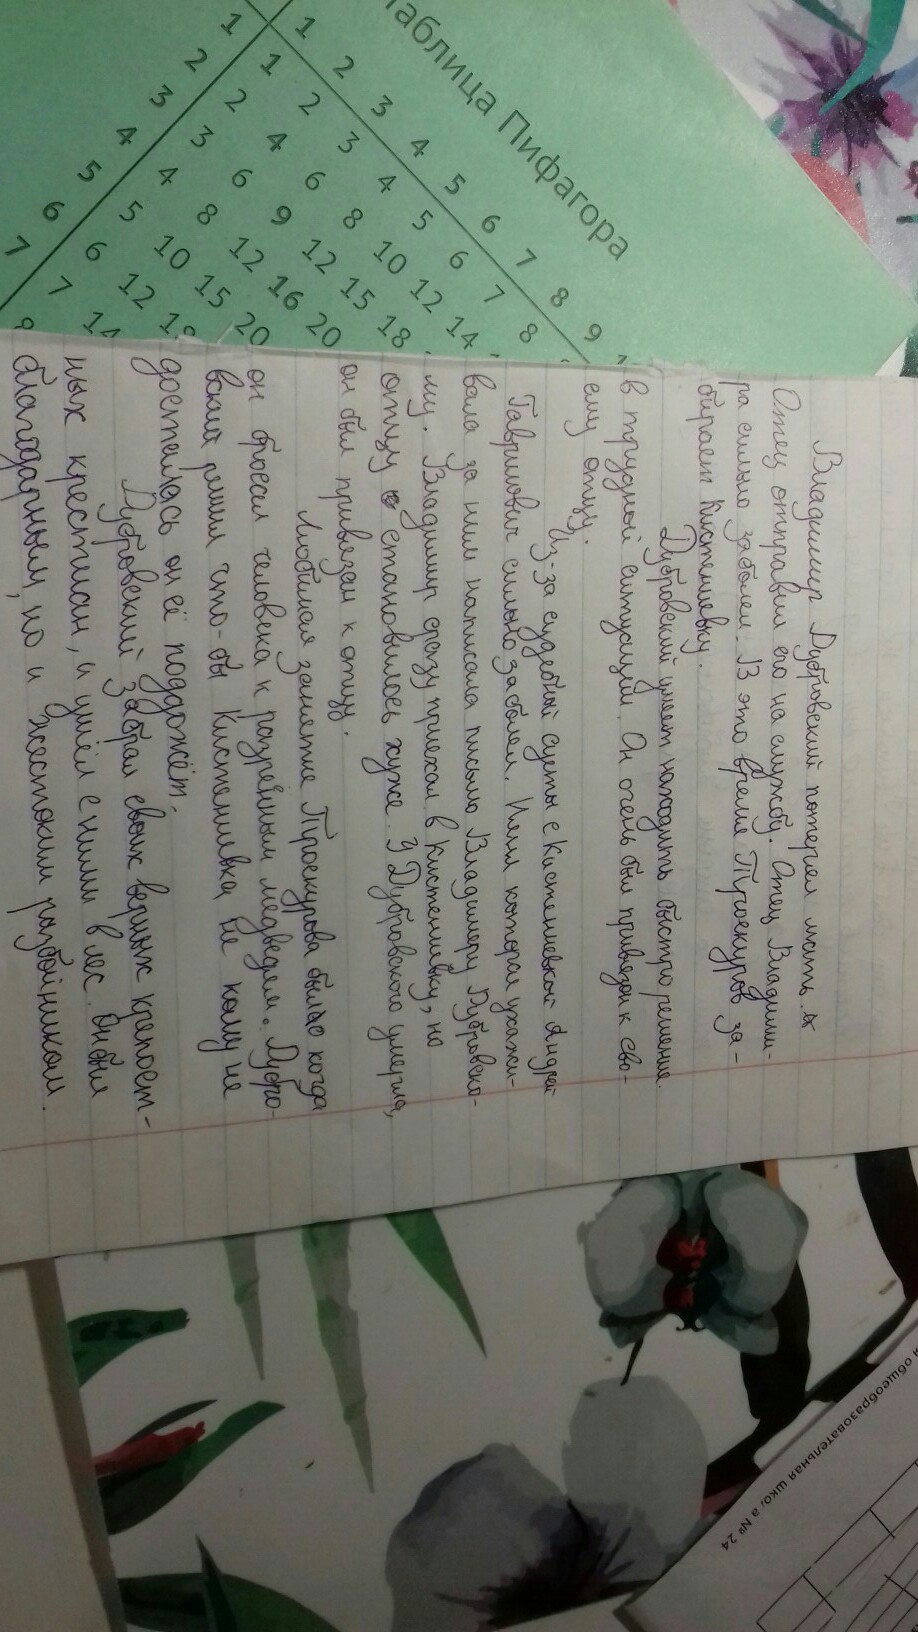 Таблица Пифагора
1 2 3 4 5 6 7 8 9
1 1 2 3 4 5 6 7 8
2 2 4 6 8 10 12 14
3 3 6 9 12 15 18
4 4 8 12 16 20
5 5 10 15 20
6 6 12 18
7 7 14
8
Владимир Дубровский потерял мать.
Отец отправил его на службу. Отец Владими-
ра сильно заболел. В это время Троекуров за-
бирает Кистенёвку.
Дубровский умеет находить быстро решение
в трудной ситуации. Он очень был привязан к сво-
ему отцу.
Из-за судебной суеты с Кистенёвкой Андрей
Гаврилович сильно заболел. Няня которая ухажи-
вала за ним написала письмо Владимеру Дубровско-
му. Владимир сразу приехал в Кистенёвку, но
отцу становилось хуже. У Дубровского умерла,
он был привязан к отцу.
Любимая занятие Троекурова было когда
он бросал человека к разъярённым медведем. Дубро-
вский решил что-бы Кистенёвка не кому не
досталась он её поддожёт.
Дубровский забрал своих верных крепост-
ных крестиан, и ушёл с ними в лес. Он был
благодарным, но и жестоким разбойником.
я общеобразовательная школа № 24